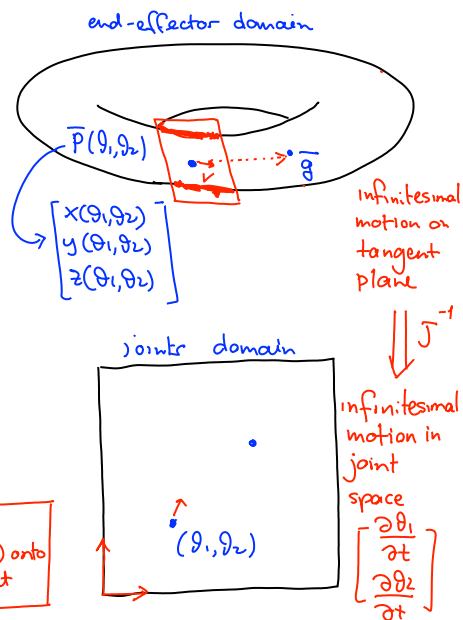 end-effector domain
p̅(θ₁,θ₂)
g̅
[x(θ₁,θ₂)
y(θ₁,θ₂)
z(θ₁,θ₂)]
infinitesimal
motion on
tangent
plane
J⁻¹
joints domain
infinitesimal
motion in
joint
space
[∂θ₁
∂t
∂θ₂
∂t]
(θ₁,θ₂)
) onto
t